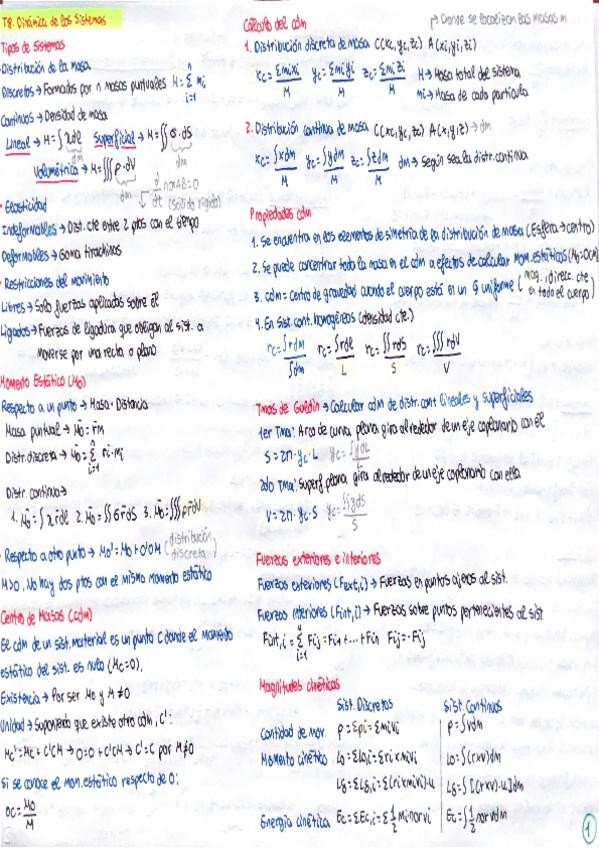 T8. Dinámica de los Sistemas
Tipos de Sistemas
• Distribución de la masa
Discretos → Formados por n masas puntuales M = Σ mi
n
i=1
Continuos → Densidad de masa
Lineal → M = ∫ λdl Superficial → M = ∬ σ·dS
dm dm
Volumétrica → M = ∭ ρ·dV
dm
d/dt norAB = 0
(Sólido rígido)
• Elasticidad
Indeformables → Dist. cte entre 2 ptos con el tiempo
Deformables → Goma tirachinas
• Restricciones del movimiento
Libres → Solo fuerzas aplicadas sobre él
Ligados → Fuerzas de ligadura que obligan al sist. a
moverse por una recta o plano
Momento Estático (Mo)
Respecto a un punto → Masa · Distancia
Masa puntual → Mo = r̄m
Distr. discreta → Mo = Σ ri·mi
n
i=1
Distr. continua →
1. M̄o = ∫ λr̄dl 2. M̄o = ∬ σr̄dS 3. M̄o = ∭ ρr̄dV
• Respecto a otro punto → Mo' = Mo + O'OM (distribución discreta)
M>0. No hay dos ptos con el mismo momento estático
Centro de Masas (cdm)
El cdm de un sist. material es un punto C donde el momento
estático del sist. es nulo (Mc=0).
Existencia → Por ser Mo y M ≠ 0
Unidad → Suponiendo que exista otro cdm, C':
Mc' = Mc + C'CM → 0 = 0 + C'CM → C' = C por M≠0
Si se conoce el mom. estático respecto de O:
OC = Mo/M
Cálculo del cdm
→ Donde se localizan las masas m
1. Distribución discreta de masa C(xc, yc, zc) A(xi, yi, zi)
xc = Σmixi/M yc = Σmiyi/M zc = Σmizi/M M → Masa total del sistema
mi → Masa de cada partícula
2. Distribución continua de masa C(xc, yc, zc) A(x, y, z) → dm
xc = ∫xdm/M yc = ∫ydm/M zc = ∫zdm/M dm → Según sea la distr. continua
Propiedades cdm
1. Se encuentra en los elementos de simetría de la distribución de masa (Esfera → centro)
2. Se puede concentrar toda la masa en el cdm a efectos de calcular mom. estáticos (Mo=OCM)
3. cdm = centro de gravedad cuando el cuerpo está en un g uniforme (mag. y direcc. cte en todo el cuerpo)
4. En sist. cont. homogéneos (densidad cte.)
rc = ∫rdm/∫dm rc = ∫rdl/L rc = ∬rds/S rc = ∭rdV/V
Tmas de Guldin → Calcular cdm de distr. cont lineales y superficiales
1er Tma: Arco de curva plana gira alrededor de un eje coplanario con él
S = 2π·yc·L yc = ∫ydl/L
2do Tma: Superf plana gira alrededor de un eje coplanario con ella
V = 2π·yc·S yc = ∬yds/S
Fuerzas exteriores e interiores
Fuerzas exteriores (Fext,i) → Fuerzas en puntos ajenos al sist.
Fuerzas interiores (Fint,i) → Fuerzas sobre puntos pertenecientes al sist.
Fint,i = Σ Fij = Fi1 + ... + Fin Fij = -Fji
Magnitudes cinéticas
Sist. Discretos Sist. Continuos
Cantidad de mov. p = Σpi = Σmivi p = ∫vdm
Momento cinético Lo = ΣLo,i = Σri x mivi Lo = ∫(rxv)dm
Lδ = ΣLδ,i = Σ(ri x mivi)·u Lδ = ∫[(rxv)·u]dm
Energía cinética Ec = ΣEc,i = Σ½ mi·nor vi Ec = ∫½ nor vdm
1